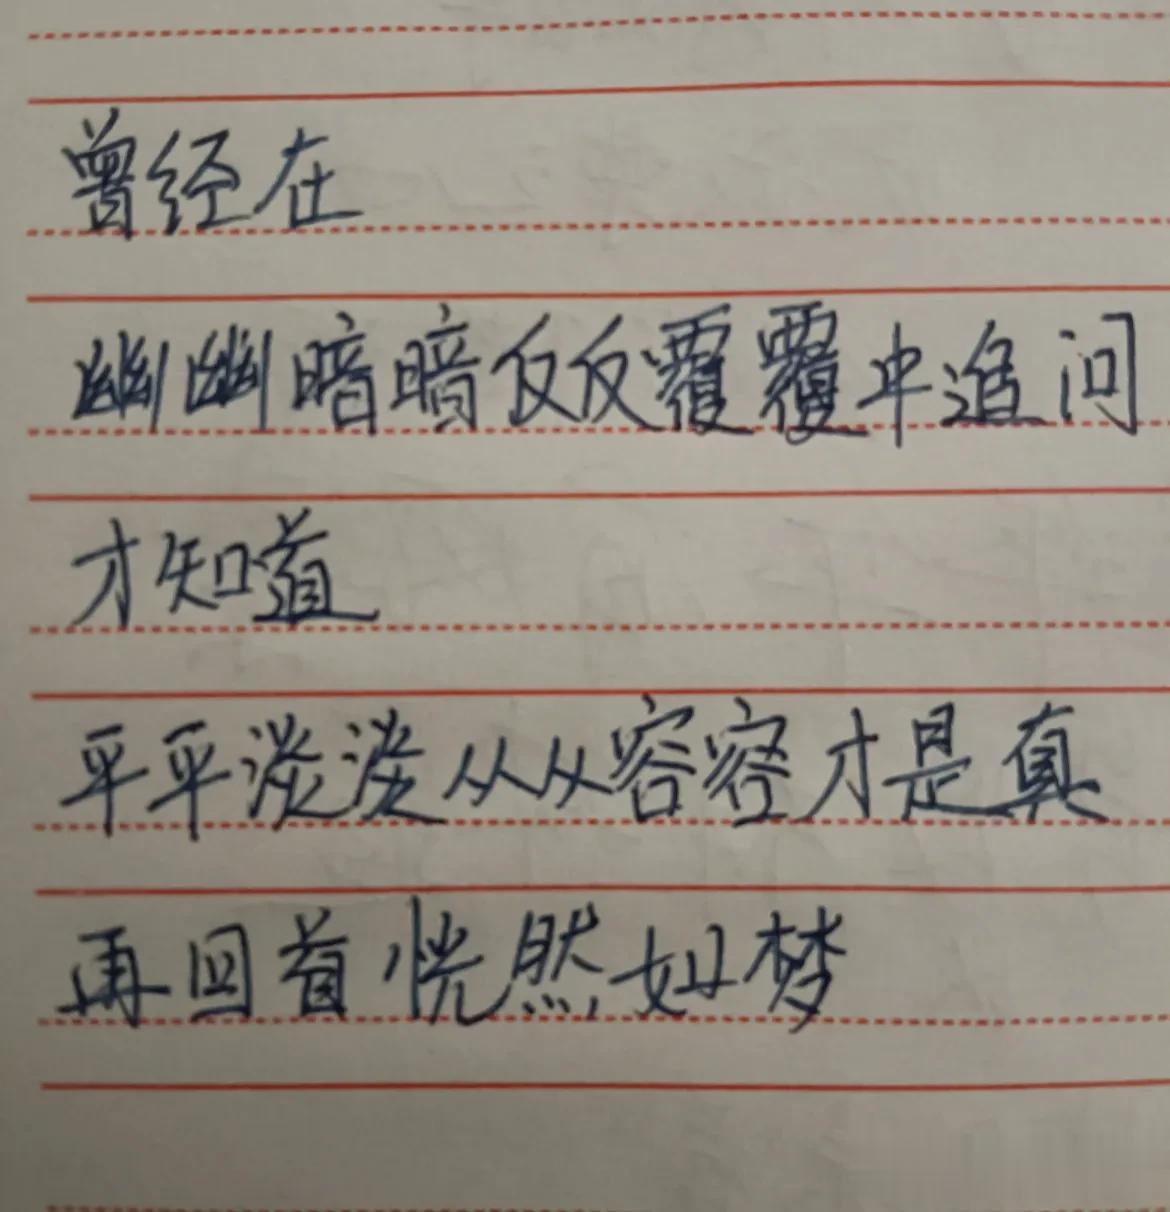 曾经在
幽幽暗暗反反覆覆中追问
才知道
平平淡淡从从容容才是真
再回首恍然如梦